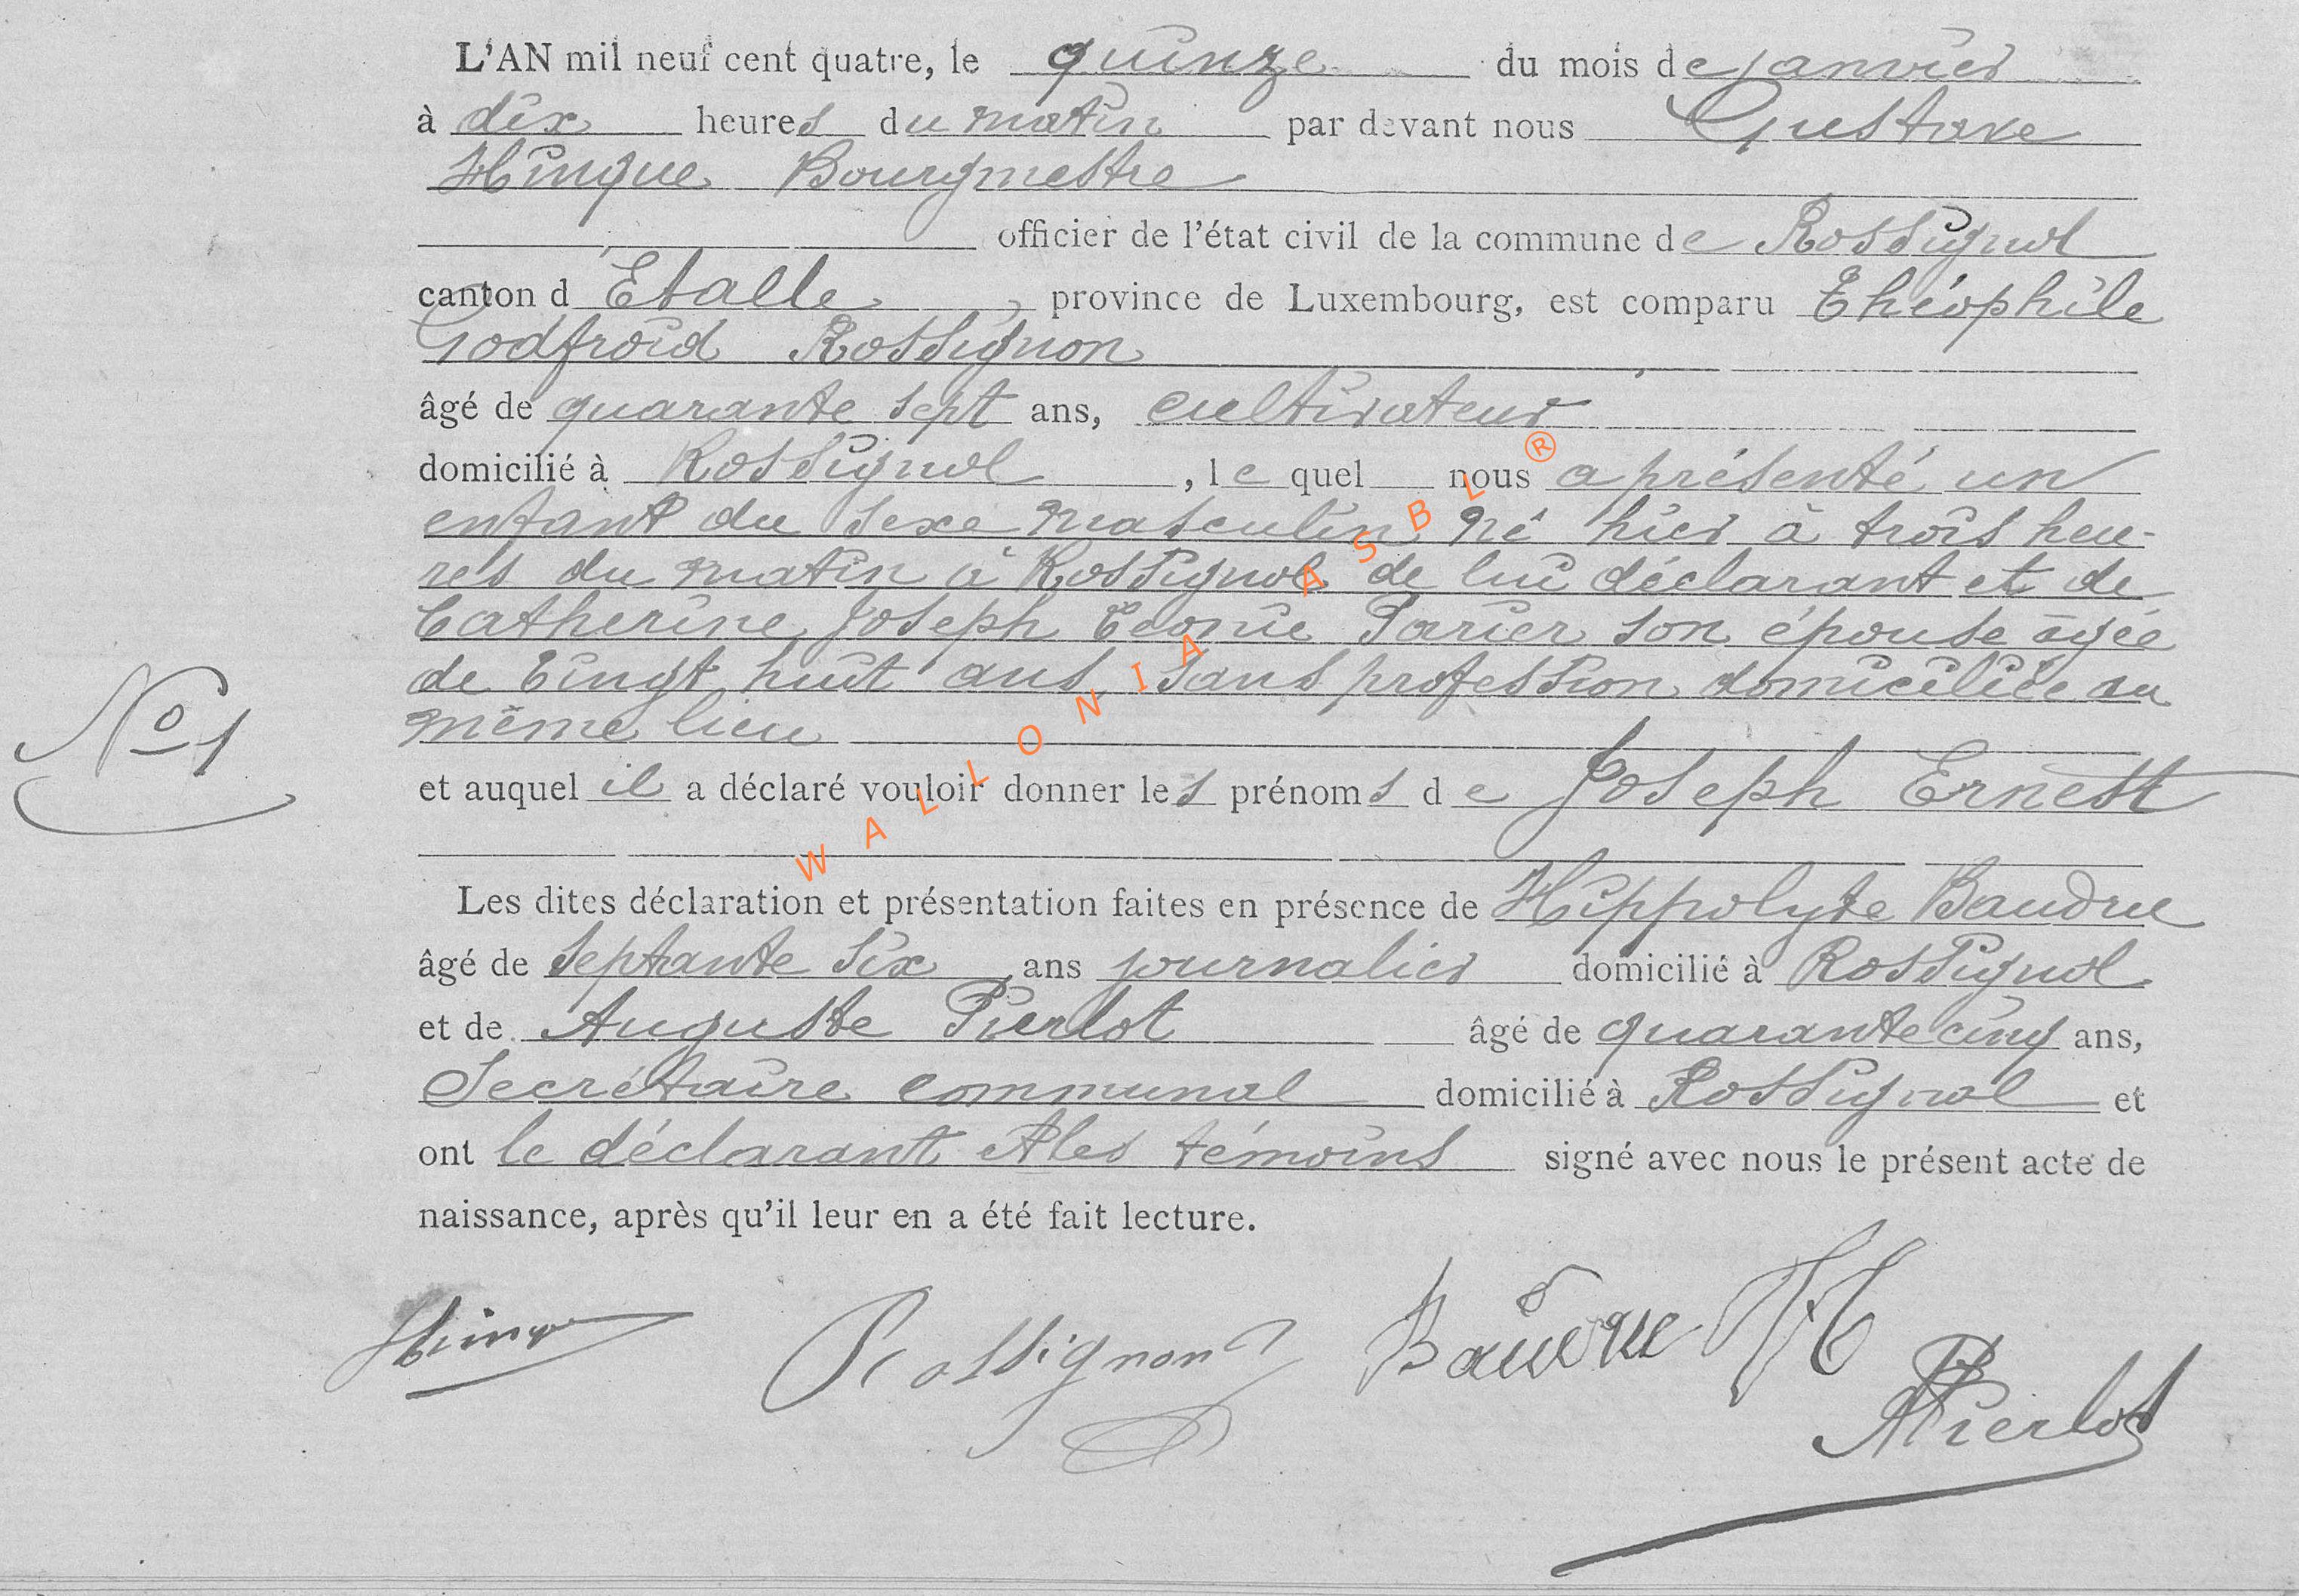 L'AN mil neuf cent quatre, le quinze du mois de janvier
à dix heures du matin par devant nous Gustave
Hinque Bourgmestre
officier de l'état civil de la commune de Rossignol
canton d Etalle, province de Luxembourg, est comparu Théophile
Godfroid Rossignon
âgé de quarante sept ans, cultivateur
domicilié à Rossignol, le quel nous a présenté un
enfant du sexe masculin né hier à trois heu-
res du matin à Rossignol de lui déclarant et de
Catherine Joseph Léonie Parier son épouse âgée
de vingt huit ans, sans profession domiciliée au
même lieu
N° 1
et auquel il a déclaré vouloir donner les prénoms de Joseph Ernest
Les dites déclaration et présentation faites en présence de Hippolyte Baudru
âgé de septante six ans journalier domicilié à Rossignol
et de Auguste Pierlot âgé de quarante cinq ans,
Secrétaire communal domicilié à Rossignol et
ont le déclarant & les témoins signé avec nous le présent acte de
naissance, après qu'il leur en a été fait lecture.
Rossignon
APierlot
WALLONIA ASBL ®